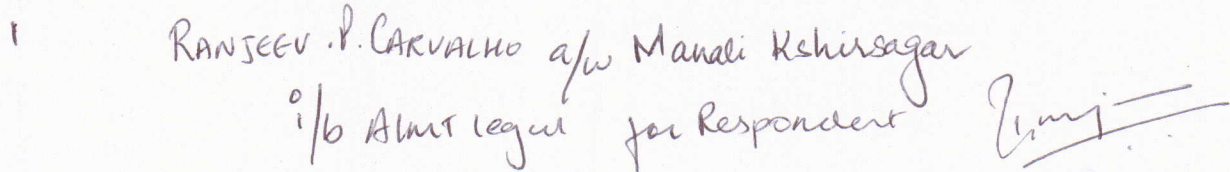 RANJEEV.P.CARVALHO a/w Manali Kshirsagar
i/b ALMT legal for Respondent